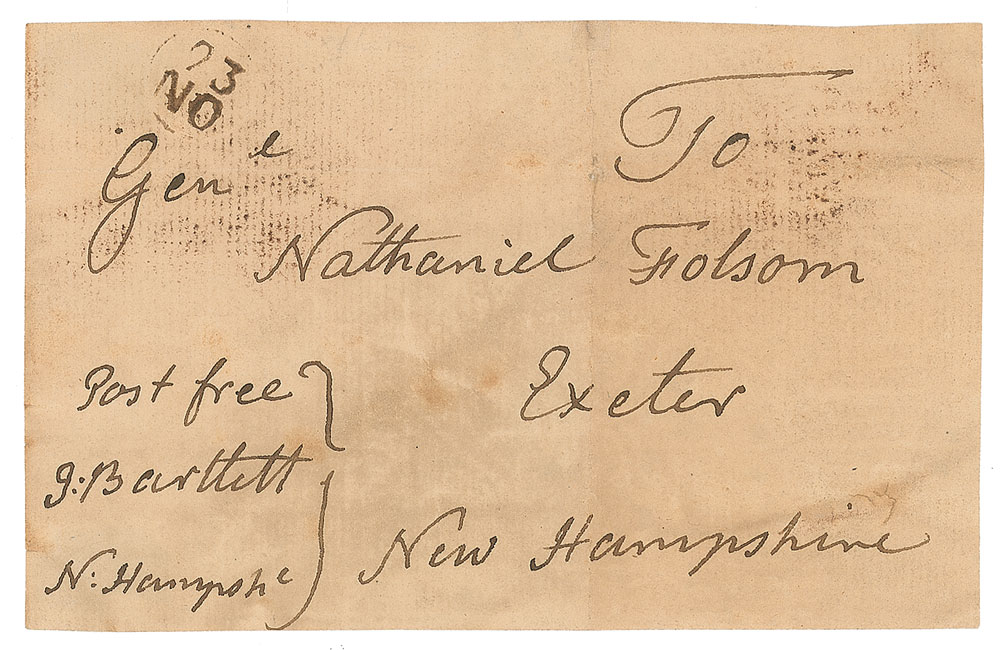 23
NO
To
Gen^l
Nathaniel Folsom
Exeter
New Hampshire
Post free
J: Bartlett
N: Hampsh^e